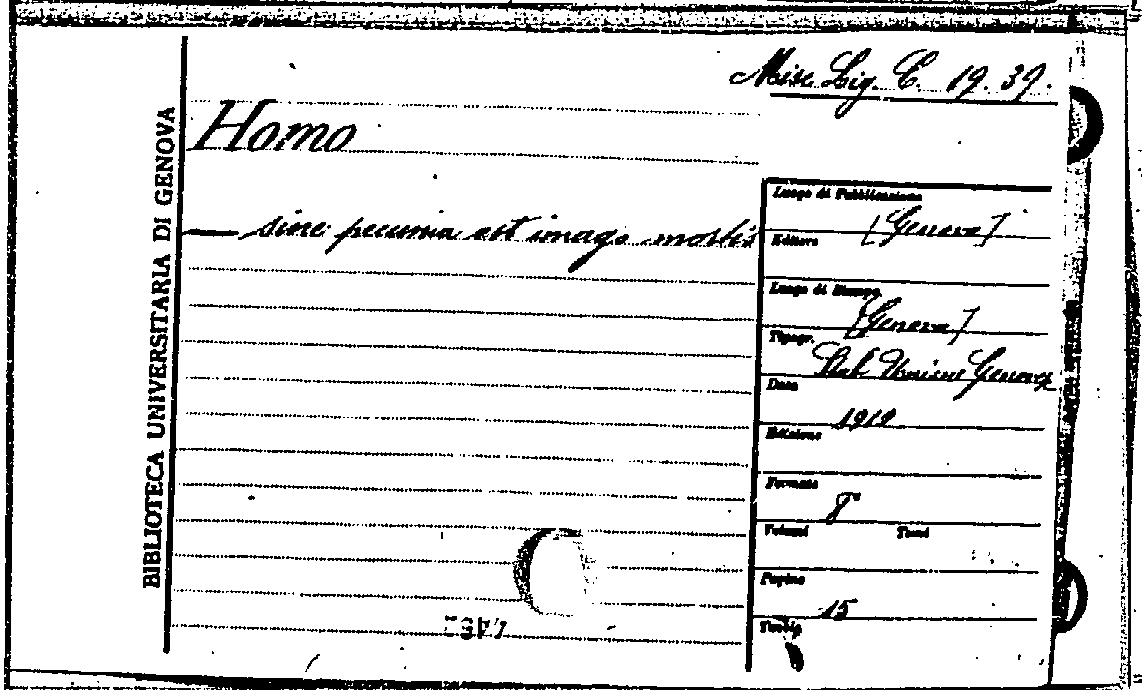 Misc. Lig. C. 19. 39.
BIBLIOTECA UNIVERSITARIA DI GENOVA
Homo
— sine pecunia est imago mortis
Luogo di Pubblicazione
[Genova]
Editore
Luogo di Stampa
[Genova]
Tipogr.
Stab. Unione Genova
Data
1919
Edizione
Formato
8°
Volumi Tomi
Pagine
15